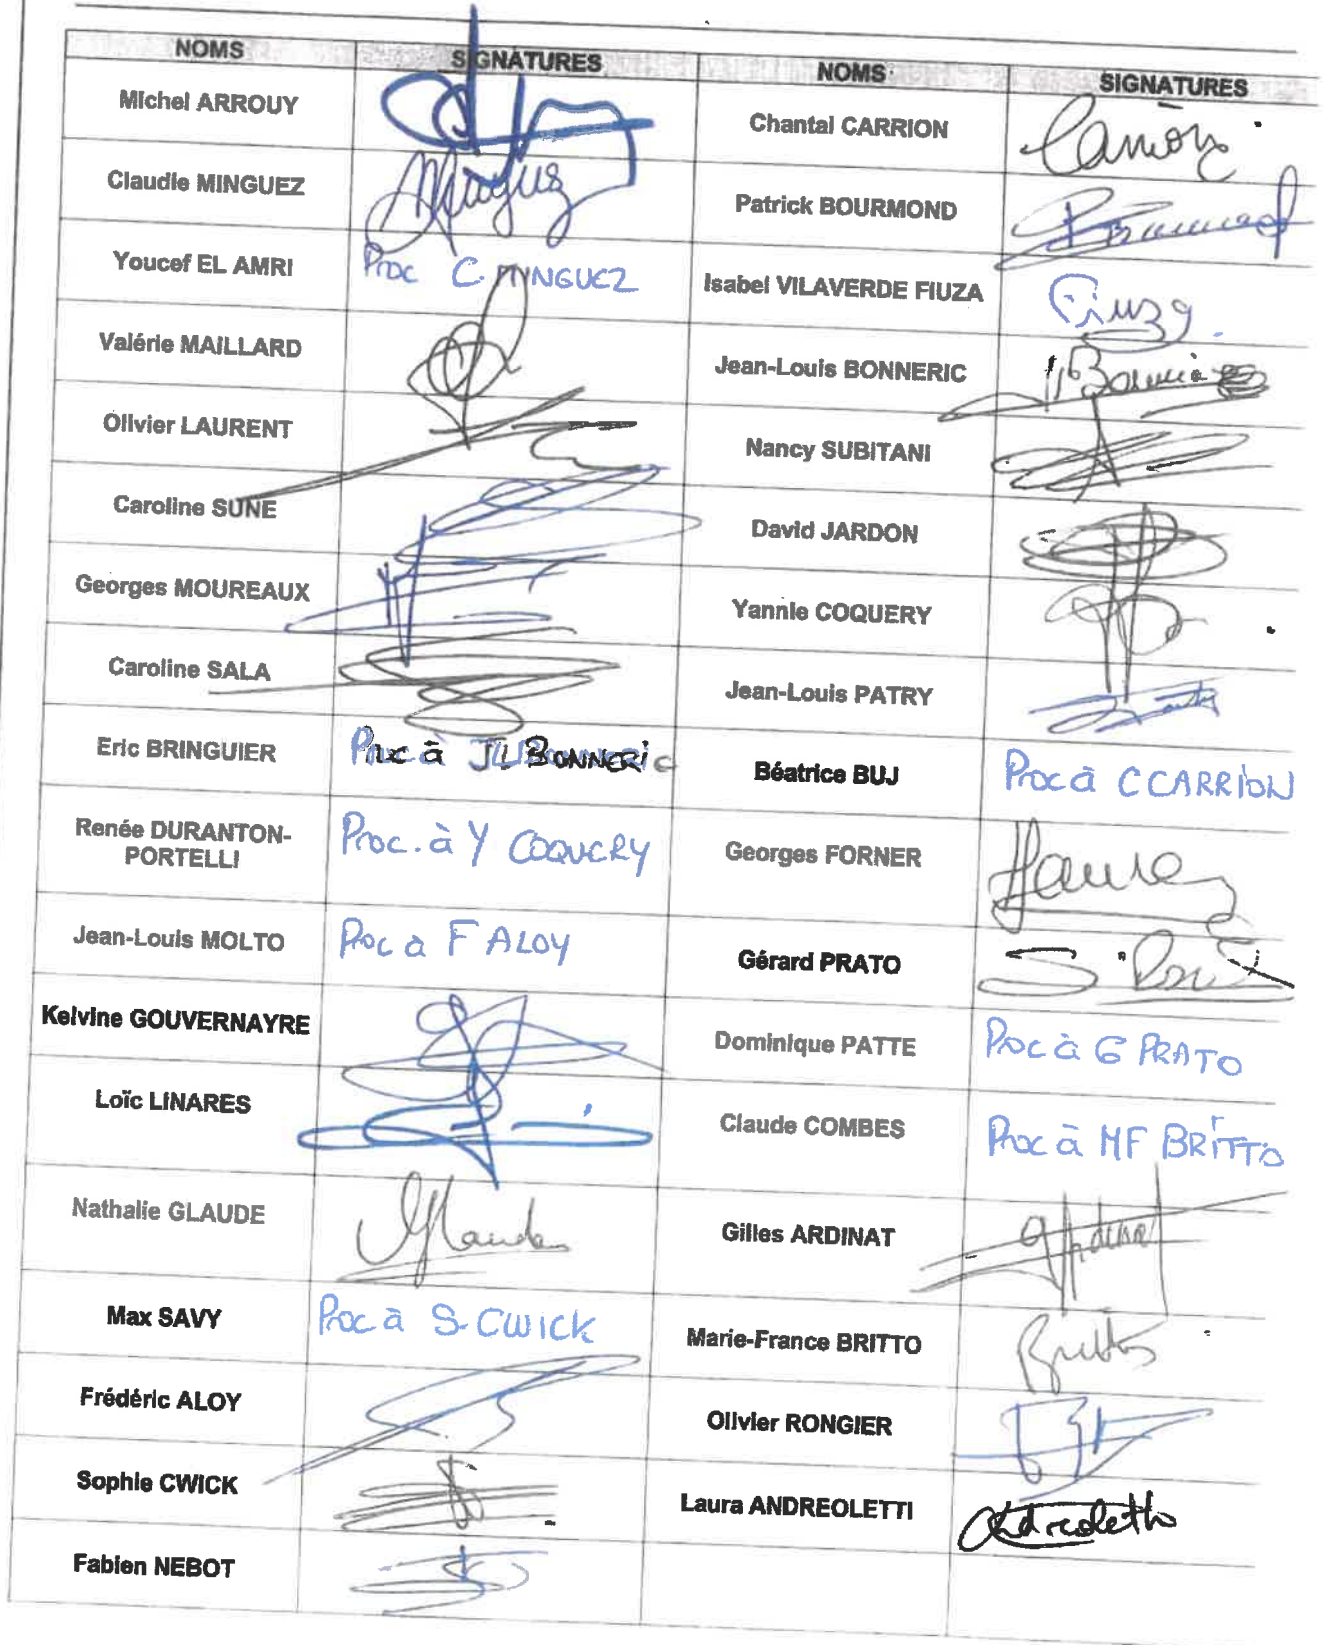 NOMS SIGNATURES NOMS SIGNATURES
Michel ARROUY Chantal CARRION
Claudie MINGUEZ Minguez Patrick BOURMOND
Youcef EL AMRI Proc C. MINGUEZ Isabel VILAVERDE FIUZA Fiuza
Valérie MAILLARD Jean-Louis BONNERIC
Olivier LAURENT Nancy SUBITANI
Caroline SUNE David JARDON
Georges MOUREAUX Yannie COQUERY
Caroline SALA Jean-Louis PATRY
Eric BRINGUIER Proc à JL BONNERIC Béatrice BUJ Proc à C CARRION
Renée DURANTON-
PORTELLI Proc. à Y COQUERY Georges FORNER
Jean-Louis MOLTO Proc à F ALOY Gérard PRATO
Kelvine GOUVERNAYRE Dominique PATTE Proc à G PRATO
Loïc LINARES Claude COMBES Proc à MF BRITTO
Nathalie GLAUDE Gilles ARDINAT
Max SAVY Proc à S. CWICK Marie-France BRITTO Britto
Frédéric ALOY Olivier RONGIER
Sophie CWICK Laura ANDREOLETTI Andreoletti
Fabien NEBOT